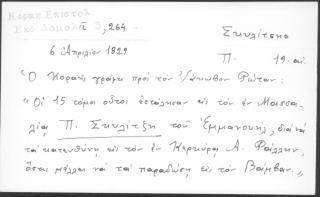 Κοραη Επιστολ
Εκδ Δαμαλᾶ 3, 264.
Σκυλίτσης
6 Απριλίου 1829
Π. 19. αι.
Ὁ Κοραῆς γράφει πρὸς τὸν Ἰάκωβον Ρώταν:
"Οἱ 15 τόμοι οὗτοι ἐστάλησαν εἰς τὸν ἐν Μασσα-
λίᾳ Π. Σκυλίτζη τοῦ Ἐμμανουήλ, διὰ νὰ
τὰ κατευθύνῃ εἰς τὸν ἐν Κερκύρᾳ Α. Ράλλην,
ὅστις μέλλει νὰ τὰ παραδώσῃ εἰς τὸν Βάμβαν."